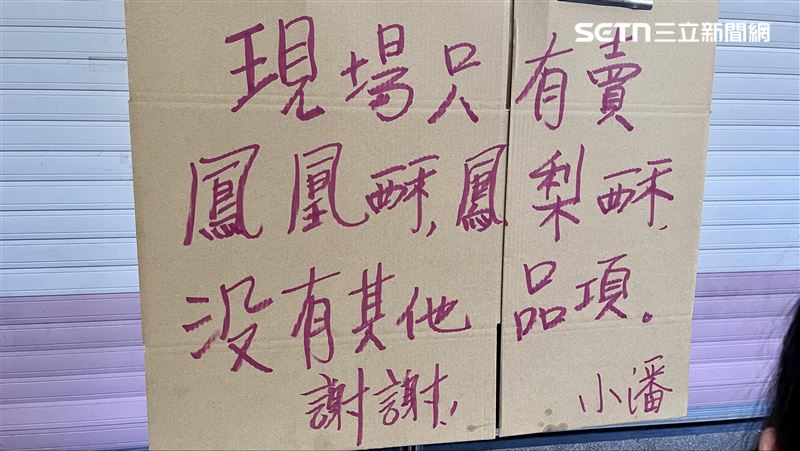 SETN三立新聞網
現場只有賣
鳳凰酥,鳳梨酥,
没有其他品項。
謝謝!
小潘